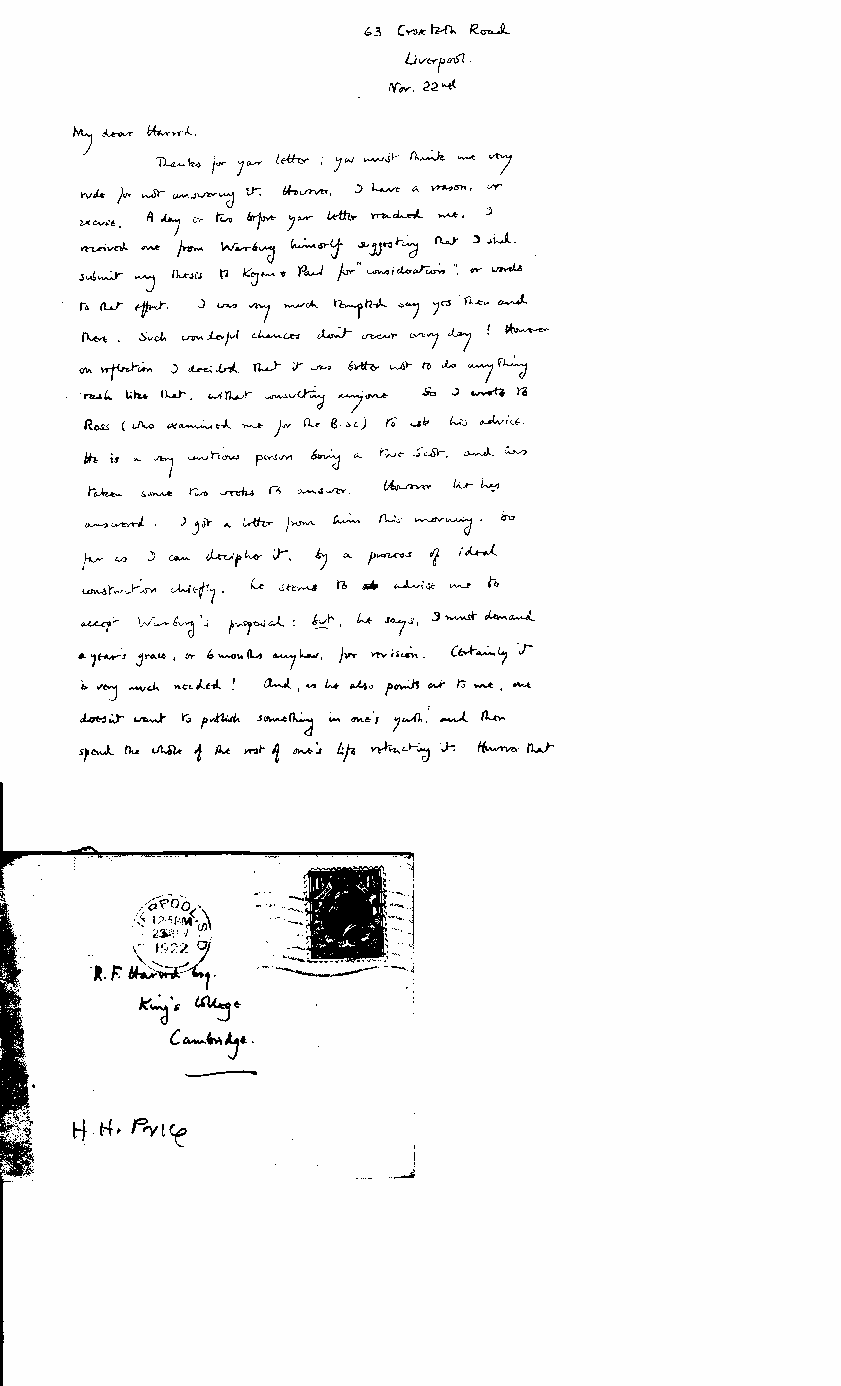 63 Croxteth Road
Liverpool.
Nov. 22nd
My dear Harrod,
Thanks for your letter; you must think me very
rude for not answering it. However, I have a reason, or
excuse. A day or two before your letter reached me, I
received one from Warburg himself suggesting that I shd.
submit my thesis to Kegan & Paul for "consideration", or words
to that effect. I was very much tempted say yes then and
there. Such wonderful chances don't occur every day! However
on reflection I decided that it was better not to do anything
rash like that, without consulting anyone. So I wrote to
Ross (who examined me for the B.Sc) to ask his advice.
He is a very cautious person being a true Scot, and has
taken some two weeks to answer. However he has
answered. I got a letter from him this morning. So
far as I can decipher it, by a process of ideal
construction chiefly, he seems to advise me to
accept Warburg's proposal: but, he says, I must demand
a year's grace, or 6 months anyhow, for revision. Certainly it
is very much needed! And, as he also points out to me, one
doesn't want to publish something in one's youth, and then
spend the whole of the rest of one's life retracting it. However that
LIVERPOOL
12.15PM
23 NOV
1922
R. F. Harrod Esq.
King's College
Cambridge.
H. H. Price